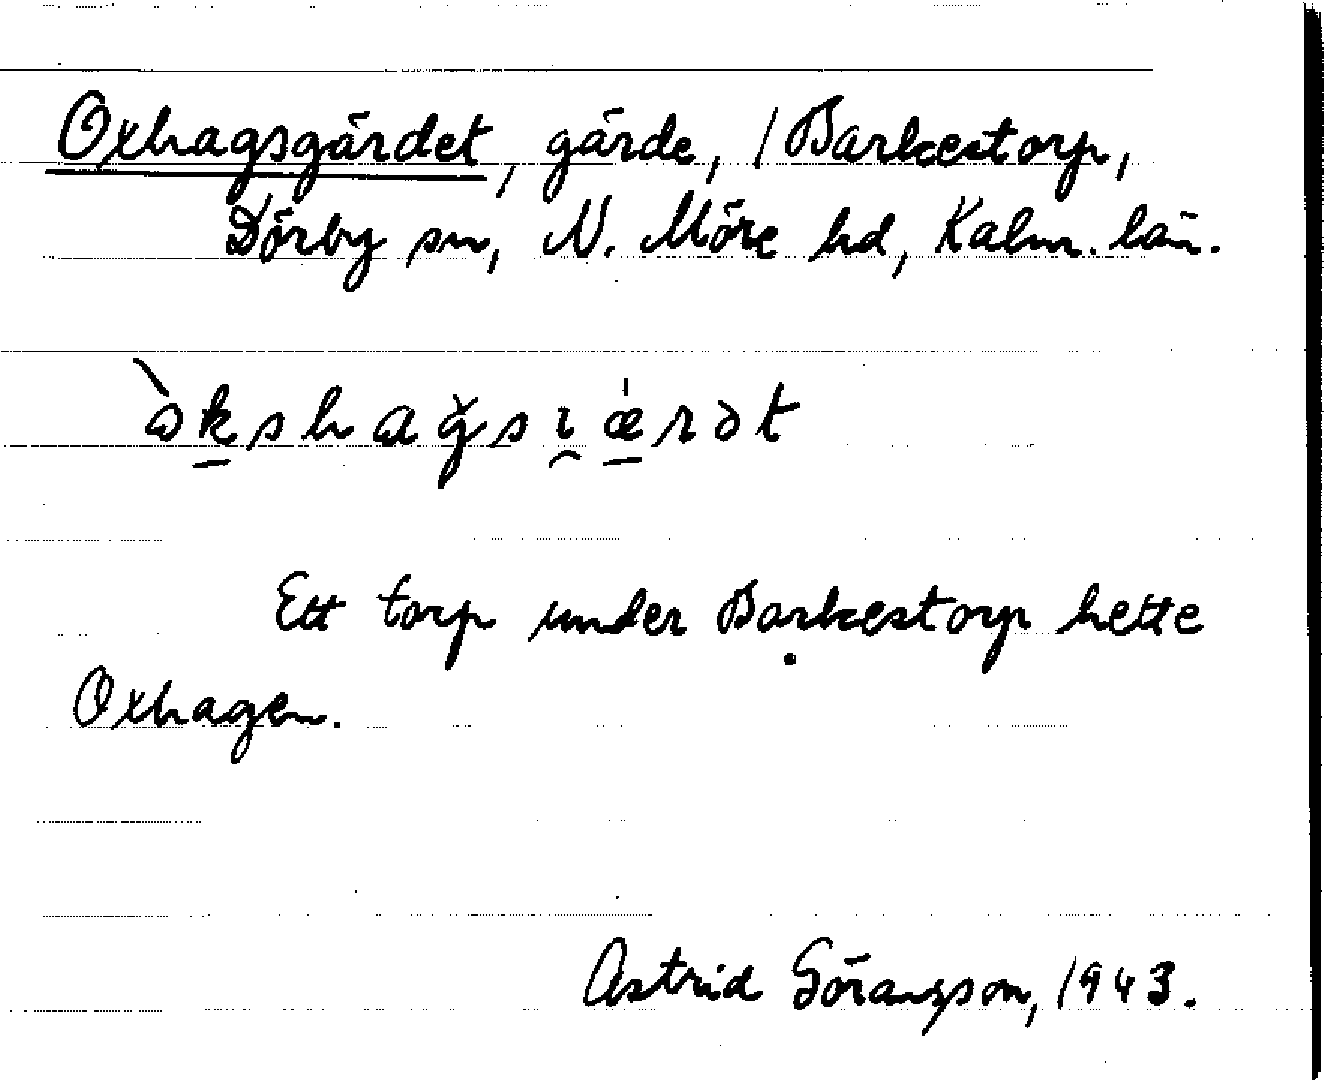 Oxhagsgärdet, gärde, / Barkestorp,
Dörby sn, N. Möre hd, Kalm. län.
Ett torp under Barkestorp hette
Oxhagen.
Astrid Göransson, 1943.